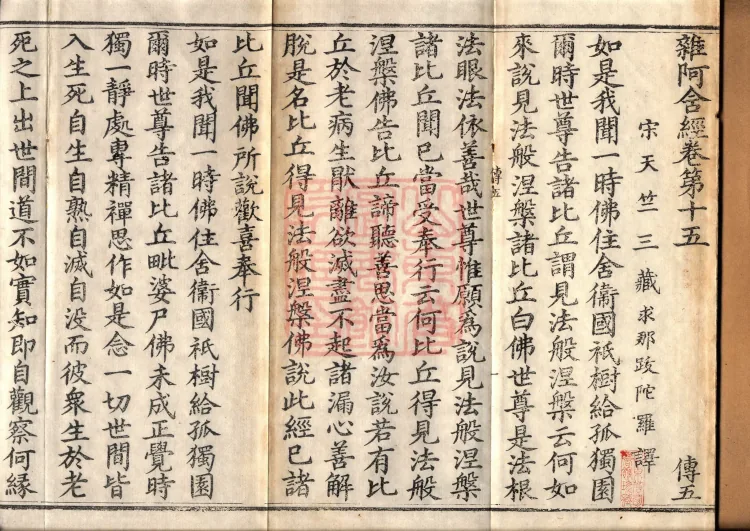 雜阿含經卷第十五 傳五
宋天竺三藏求那跋陀羅譯
如是我聞一時佛住舍衛國祇樹給孤獨園
爾時世尊告諸比丘謂見法般涅槃云何如
來說見法般涅槃諸比丘白佛世尊是法根
傳五
法眼法依善哉世尊惟願爲說見法般涅槃
諸比丘聞已當受奉行云何比丘得見法般
涅槃佛告比丘諦聽善思當爲汝說若有比
丘於老病生猒離欲滅盡不起諸漏心善解
脫是名比丘得見法般涅槃佛說此經已諸
比丘聞佛所說歡喜奉行
如是我聞一時佛住舍衛國祇樹給孤獨園
爾時世尊告諸比丘毗婆尸佛未成正覺時
獨一靜處專精禪思作如是念一切世間皆
入生死自生自熟自滅自没而彼衆生於老
死之上出世間道不如實知即自觀察何緣